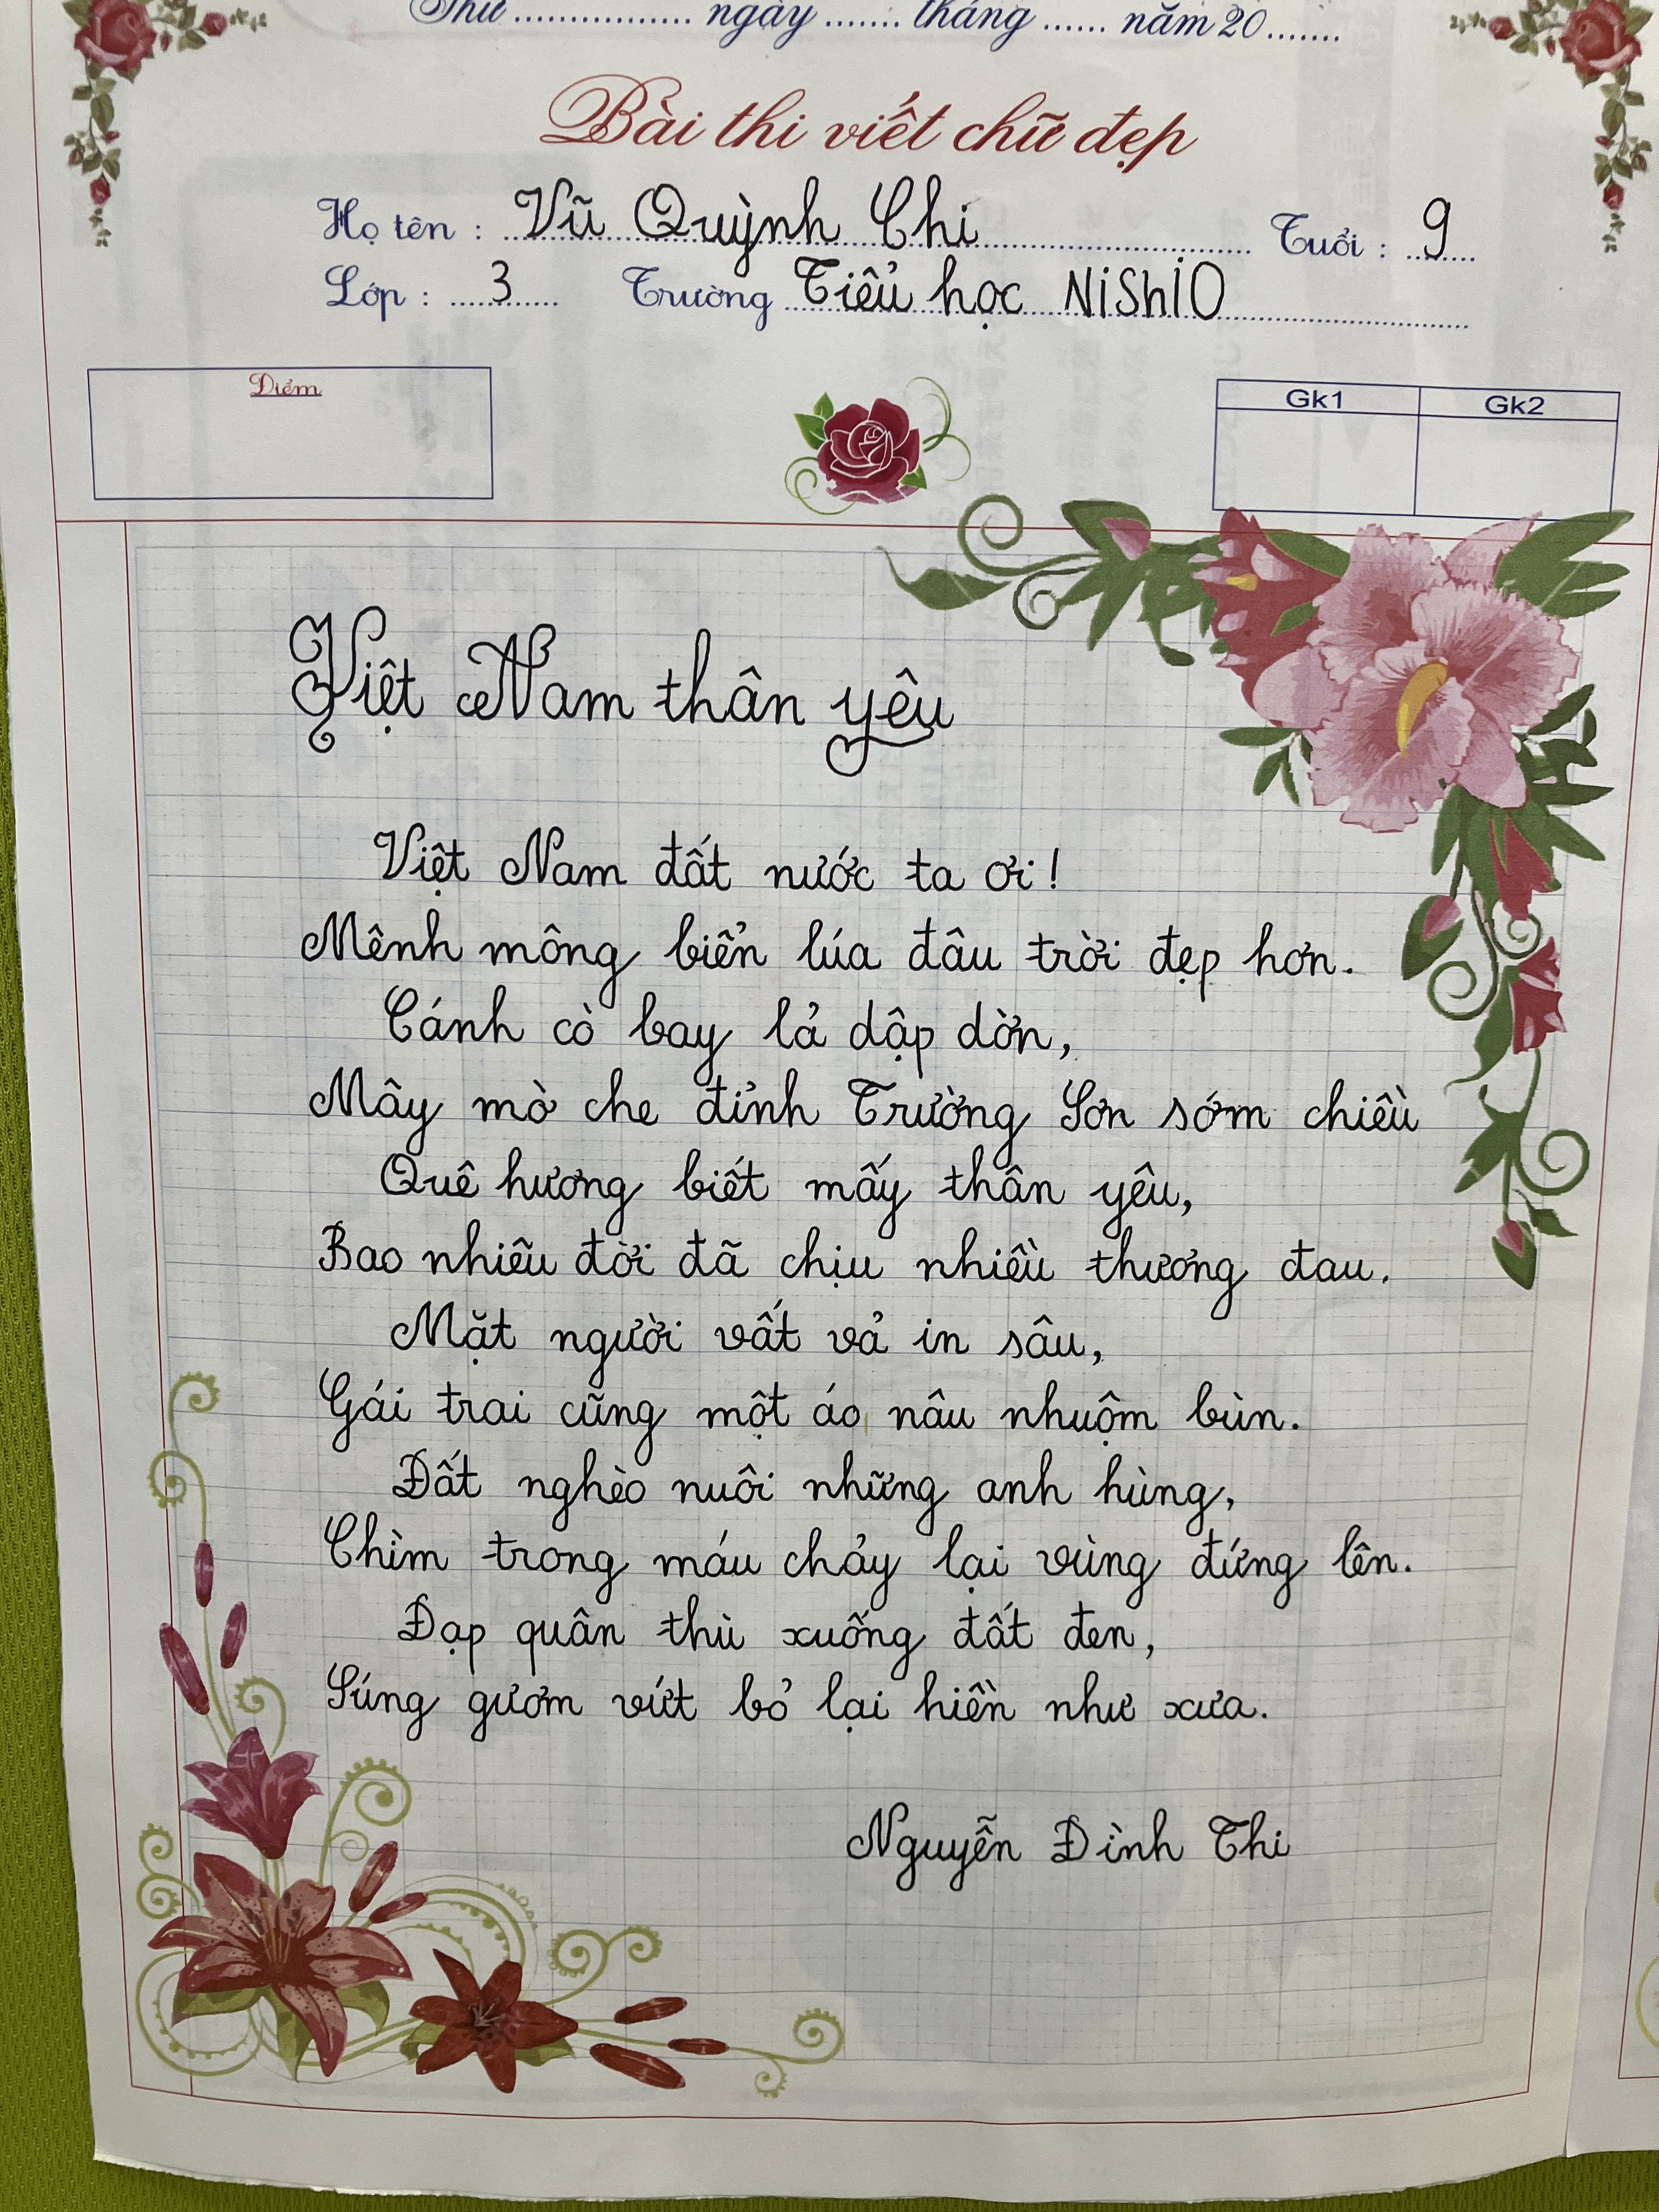 Thứ ............... ngày ....... tháng ...... năm 20.......
Bài thi viết chữ đẹp
Họ tên : Vũ Quỳnh Chi Tuổi : 9
Lớp : 3 Trường Tiểu học NiShiO
Điểm
Gk1 Gk2
Việt Nam thân yêu
Việt Nam đất nước ta ơi!
Mênh mông biển lúa đâu trời đẹp hơn.
Cánh cò bay lả dập dờn,
Mây mờ che đỉnh Trường Sơn sớm chiều
Quê hương biết mấy thân yêu,
Bao nhiêu đời đã chịu nhiều thương đau.
Mặt người vất vả in sâu,
Gái trai cũng một áo nâu nhuộm bùn.
Đất nghèo nuôi những anh hùng,
Chìm trong máu chảy lại vùng đứng lên.
Đạp quân thù xuống đất đen,
Súng gươm vứt bỏ lại hiền như xưa.
Nguyễn Đình Thi